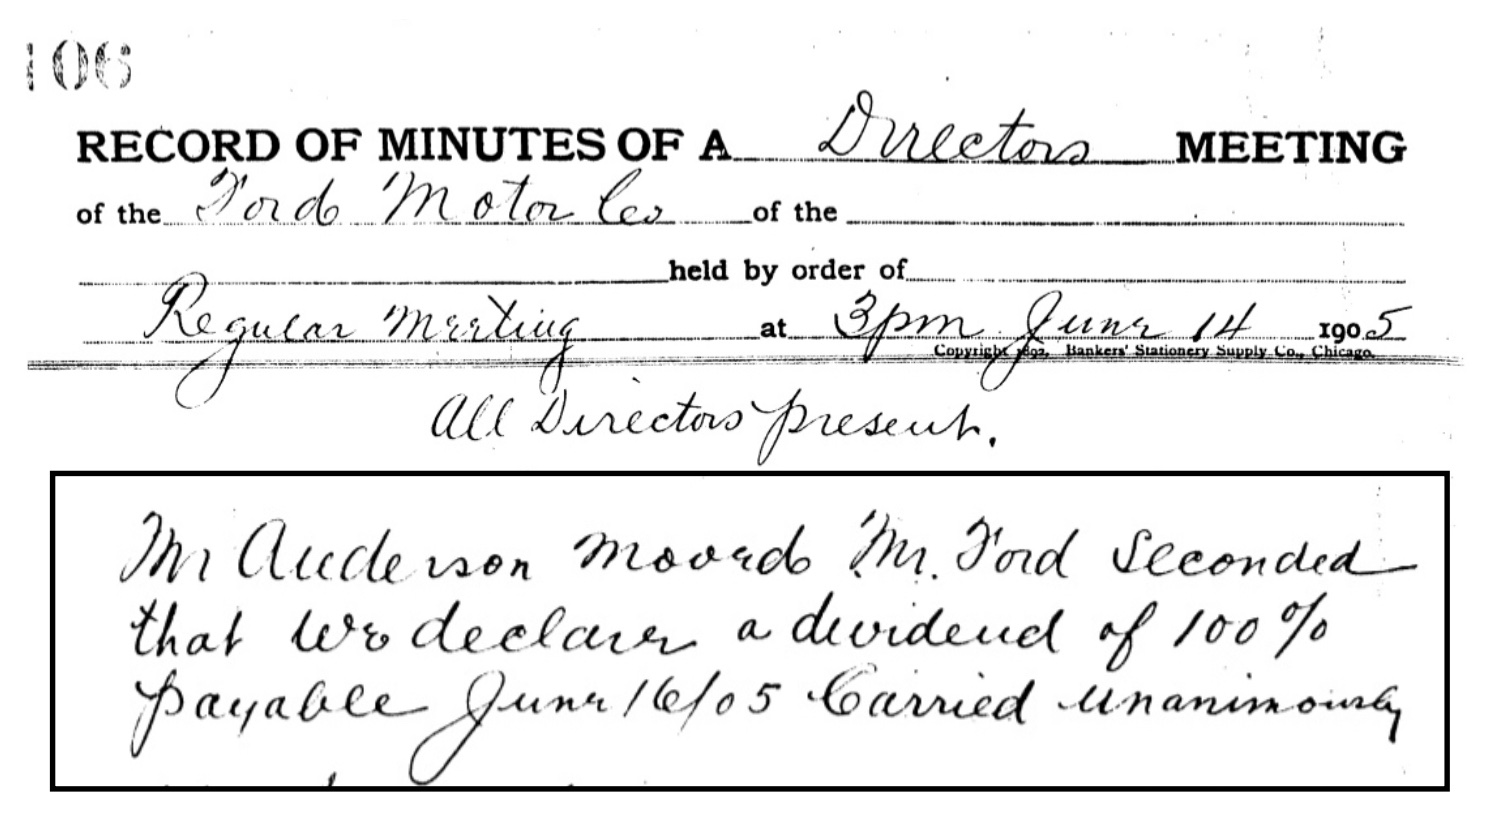 106
RECORD OF MINUTES OF A Directors MEETING
of the Ford Motor Co of the
held by order of
Regular Meeting at 3pm June 14 1905
Copyright 1892, Bankers' Stationery Supply Co., Chicago.
All Directors present.
Mr Anderson moved Mr. Ford Seconded
that we declare a dividend of 100%
payable June 16/05 Carried unanimously